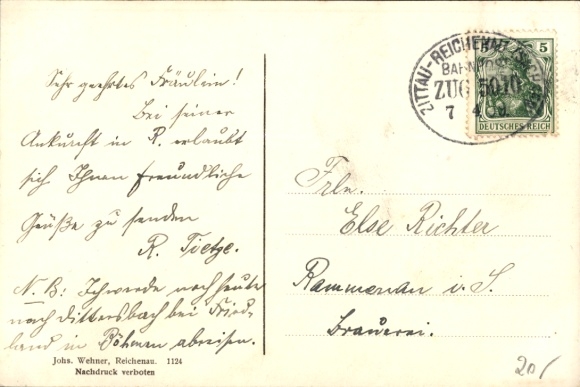 Sehr geehrtes Fräulein!
Bei seiner
Ankunft in R. erlaubt
sich Ihnen freundliche
Grüße zu senden
R. Tietze.
N.B: Ich werde noch heute
nach Dittersbach bei Fried-
land in Böhmen abreisen.
Johs. Wehner, Reichenau. 1124
Nachdruck verboten
ZITTAU-REICHENAU
BAHNPOST
ZUG 5070
7 4
5
DEUTSCHES REICH
Frln.
Else Richter
Rammenau i. S.
Brauerei.
20/